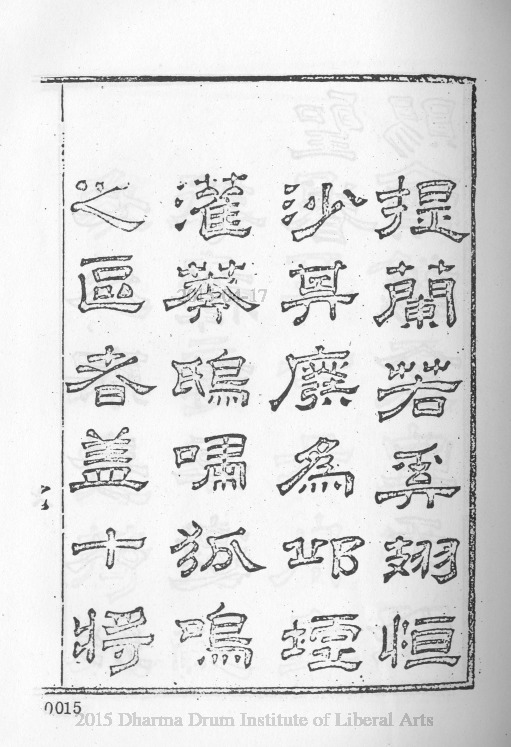 提蘭若奚翅恒
沙其廢為邱堙
灌莽鴟嘯狐鳴
之區者盖十將
0015
2015 Dharma Drum Institute of Liberal Arts